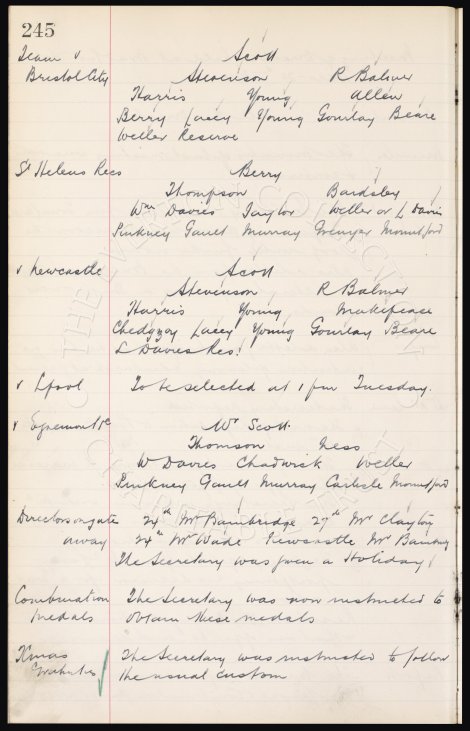 245
Team v Scott
Bristol City Stevenson R Balmer
Harris Young Allen
Berry Lacey Young Gourlay Beare
Weller Reserve
St Helens Recs Berry
Thompson Bardsley
Wm Davies Taylor Weller or L Davis
Pinkney Gault Murray Grenyer Mountford
v Newcastle Scott
Stevenson R Balmer
Harris Young Makepeace
Chedgzoy Lacey Young Gourlay Beare
L Davies Res.
v Lpool To be selected at 1 pm Tuesday.
v Egremont Wr Scott.
Thomson Ness
W Davies Chadwick Weller
Pinkney Gault Murray Carlisle Mountford
Directors on gate 24th Mr Bainbridge 27th Mr Clayton
away 24th Mr Wade Newcastle Mr
The Secretary was given a Holiday
Combination The Secretary was now instructed to
Medals obtain these medals
Xmas The Secretary was instructed to follow
Gratuities the usual custom
THE EVERTON COLLECTION